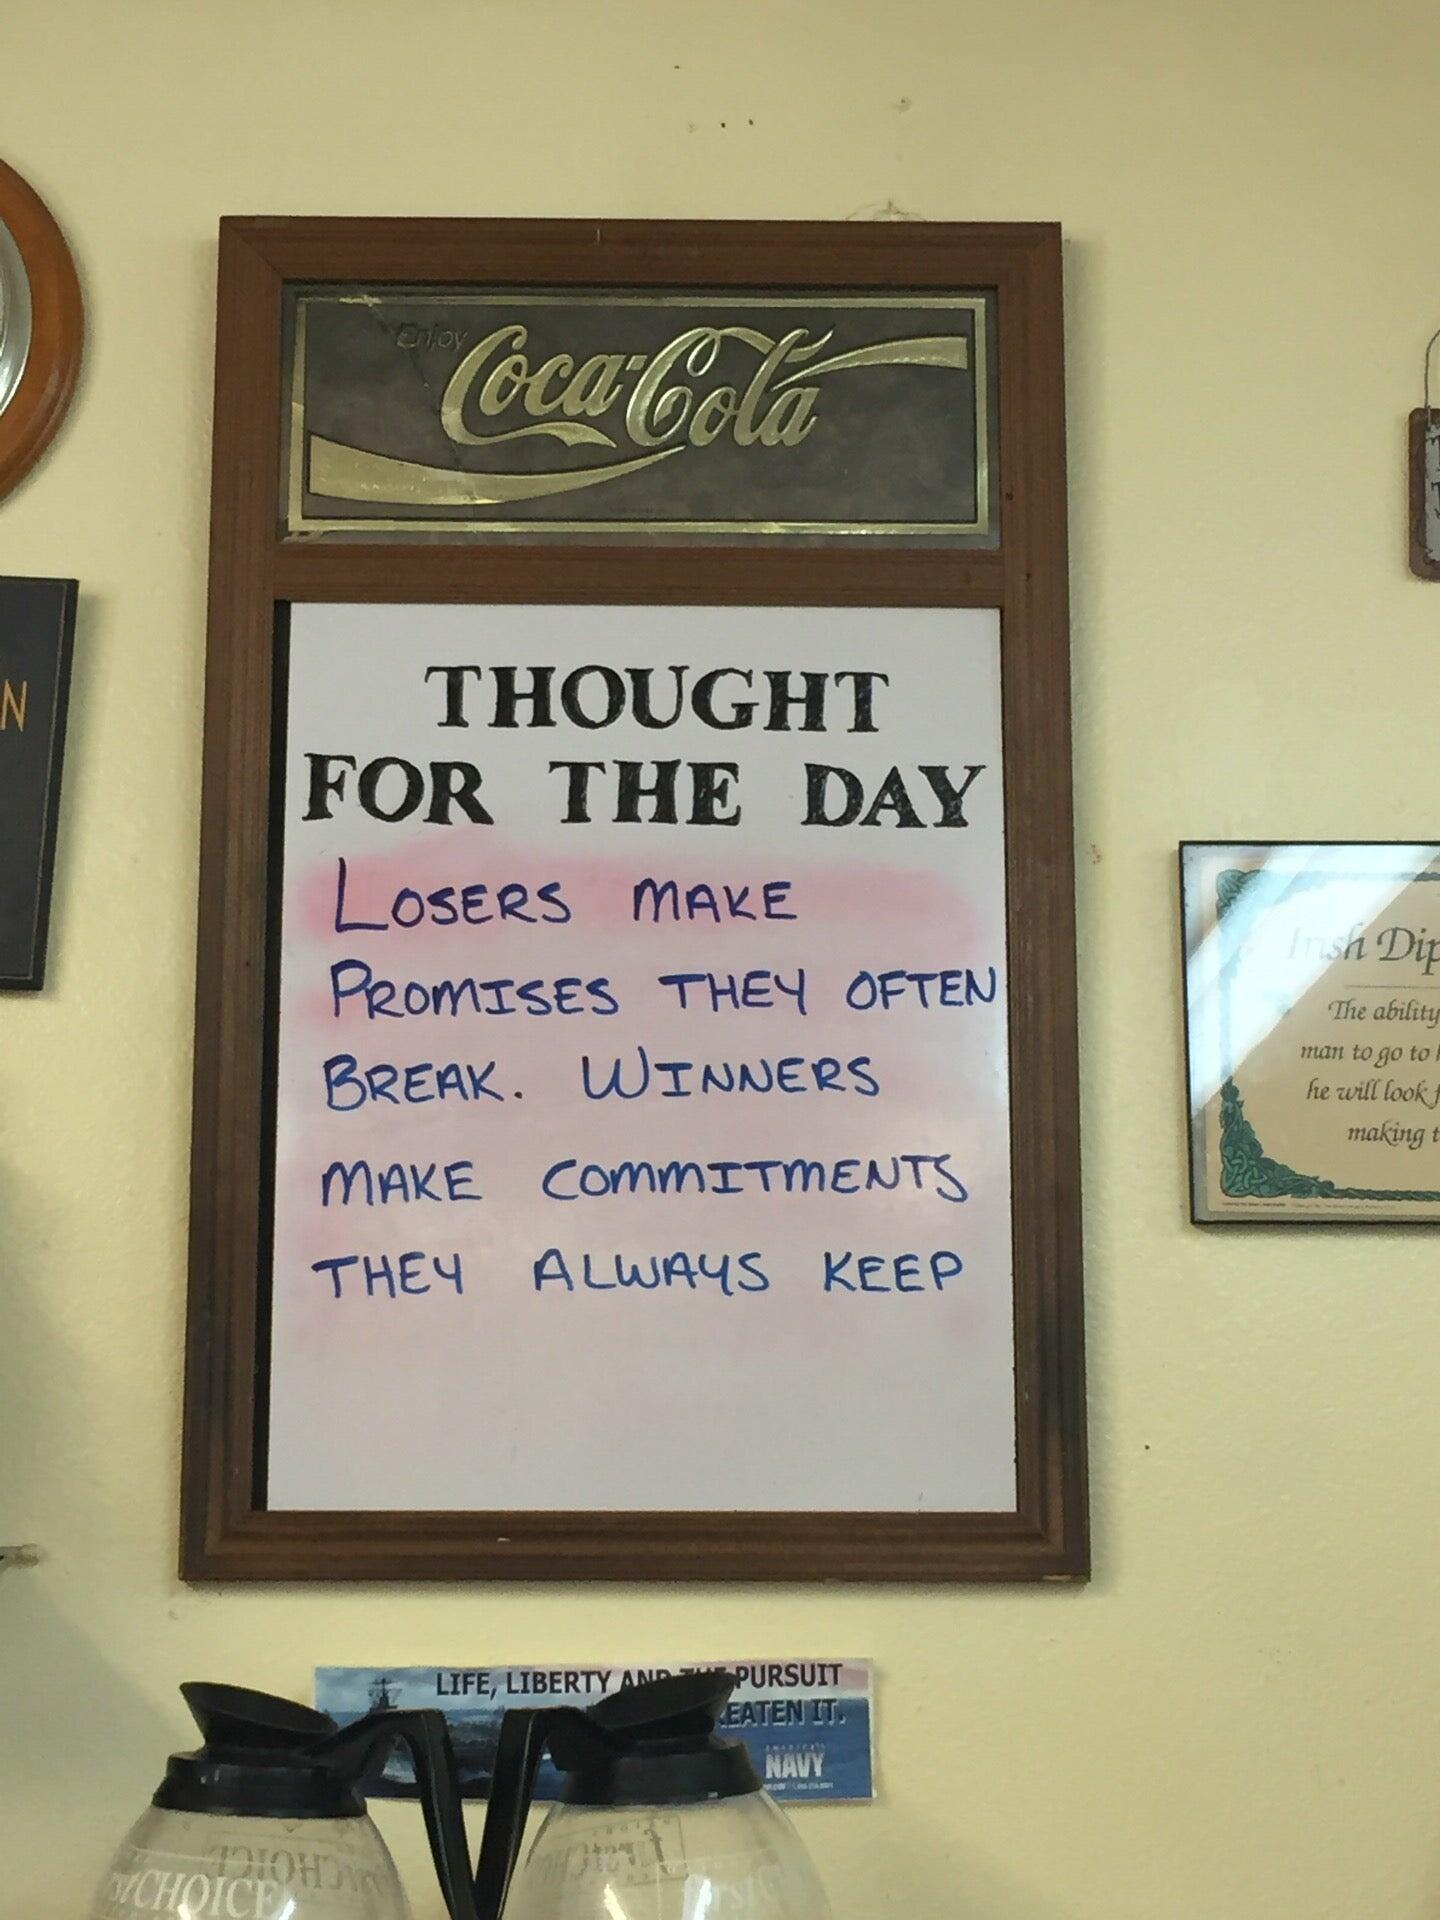 Enjoy
Coca-Cola
THOUGHT
FOR THE DAY
LOSERS MAKE
PROMISES THEY OFTEN
BREAK. WINNERS
MAKE COMMITMENTS
THEY ALWAYS KEEP
N
Irish Dip
The ability
man to go to
he will look f
making t
LIFE, LIBERTY AND THE PURSUIT
EATEN IT.
NAVY
stCHOICE